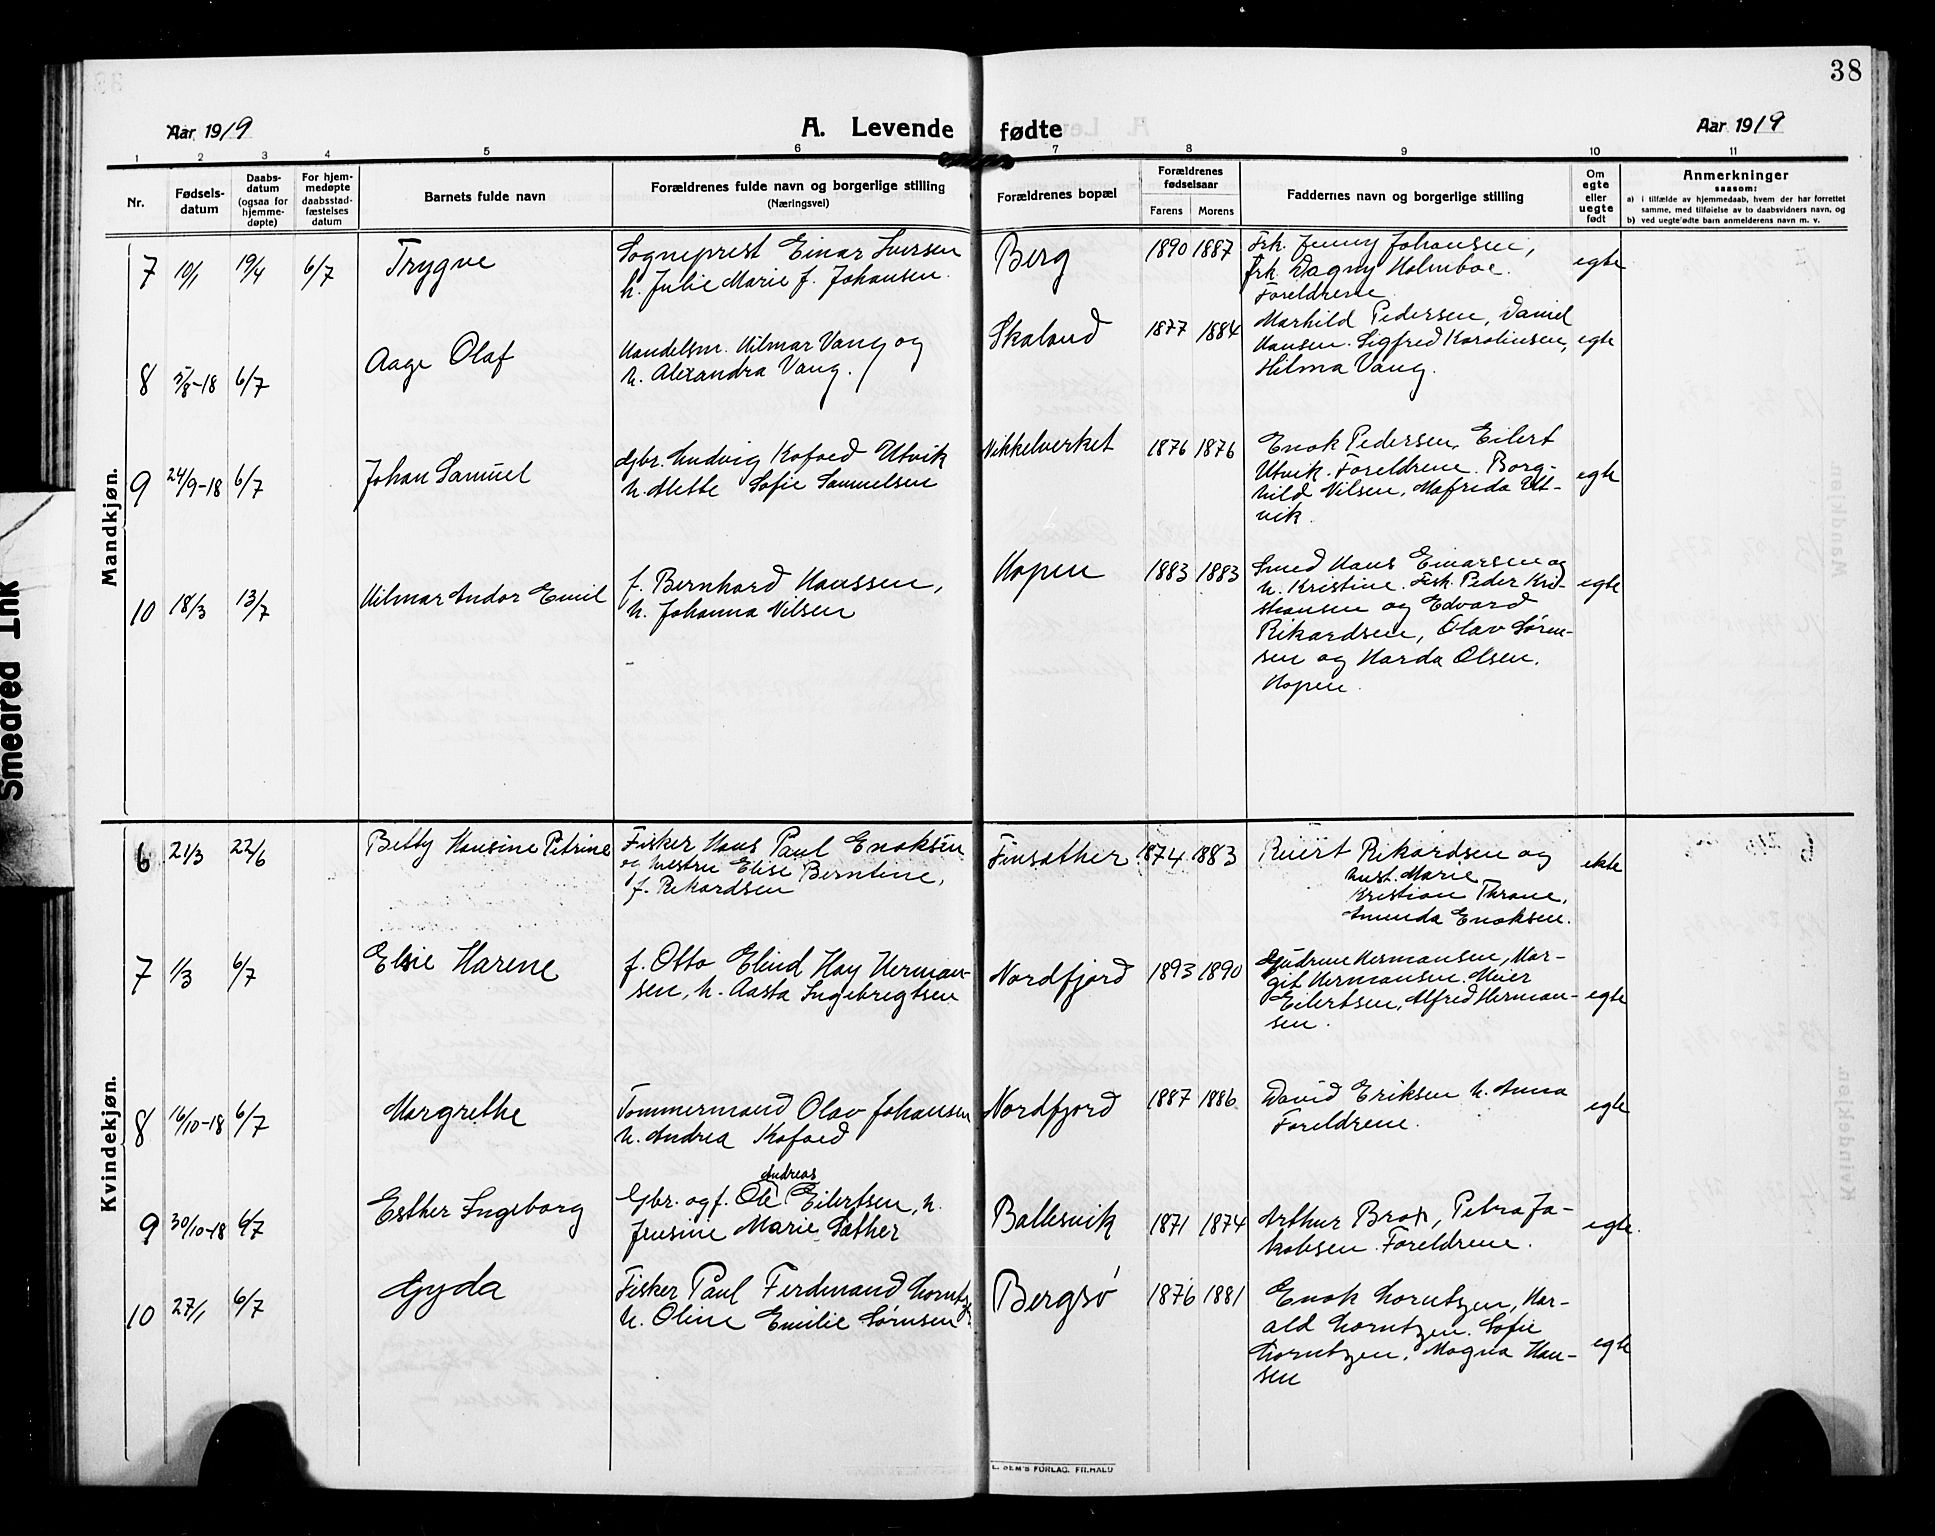 38
Aar 1919
A. Levende fødte
Aar 1919
1 2 3 4 5 6 7 8 9 10 11
Nr.
Fødsels-
datum
Daabs-
datum
(ogsaa for
hjemme-
døpte)
For hjem-
medøpte
daabsstad-
fæstelses
datum
Barnets fulde navn
Forældrenes fulde navn og borgerlige stilling
(Næringsvei)
Forældrenes bopæl
Forældrenes
fødselsaar
Farens Morens
Faddernes navn og borgerlige stilling
Om
egte
eller
uegte
født
Anmerkninger
saasom:
a) i tilfælde av hjemmedaab, hvem der har forrettet
samme, med tilføielse av to daabsvidners navn, og
b) ved uegte fødte barn anmelderens navn m. v.
Mandkjøn.
7 10/1 19/4 6/7 Trygve
Sogneprest Einar Iversen
h. Julie Marie f. Johansen.
Berg 1890 1887
Frk. Jenny Johansen,
frk. Dagny Holmboe.
Foreldrene
egte
8 5/8-18 6/7 Aage Olaf
Handelsm. Hilmar Vang og
h. Alexandra Vang.
Skaland 1877 1884
Marhild Pedersen, Daniel
Hansen. Sigfred Karolinsen,
Hilma Vang.
egte
9 24/9-18 6/7 Johan Samuel
Gbr. Ludvig Kofoed Utvik
h. Alette Sofie Samuelsen
Nikkelverket 1876 1876
Enok Pedersen, Eilert
Utvik. Foreldrene. Borg-
hild Nilsen, Mafreda Ut-
vik.
egte
10 18/3 13/7 Hilmar Andor Emil
f. Bernhard Hanssen,
h. Johanna Nilsen
Hopen 1883 1883
Smed Hans Einarsen og
h. Kristine. Fisk. Peder Kri-
stiansen og Edvard
Rikardsen, Olav Søren-
sen og Harda Olsen.
Hopen.
egte
Kvindekjøn.
6 21/3 22/6 Betty Hansine Petrine
Fisker Hans Paul Enoksen
og hustru Elise Berntine,
f. Rikardsen
Finsæther 1874 1883
Reiert Rikardsen og
hust. Marie
Kristian Throne,
Amunda Enoksen.
ekte
7 1/3 6/7 Elsie Harene
f. Otto Elind Hay Herman-
sen, h. Aasta Ingebregtsen
Nordfjord 1893 1890
Gudrun Hermansen, Mar-
git Hermansen. Meier
Eilertsen, Alfred Herman-
sen.
egte
8 16/10-18 6/7 Margrethe
Tømmermand Olav Johansen
h. Andrea Kofoed
Nordfjord 1887 1886
David Eriksen h. Anna
Foreldrene.
egte
9 30/10-18 6/7 Esther Ingeborg
Andreas
Gbr. og f. Ole Eilertsen, h.
Jensine Marie Sæther
Ballesvik 1871 1874
Arthur Brox, Petra Ja-
kobsen. Foreldrene.
egte.
10 27/1 6/7 Gyda
Fisker Paul Ferdinand Lorntzen
h. Oline Emilie Sørnsen
Bergsø 1876 1881
Enok Lorntzen, Har-
ald Lorntzen. Sofie
Lorntzen. Magna Han-
sen
egte
E. SEM'S FORLAG. FR.HALD
Smeared Ink